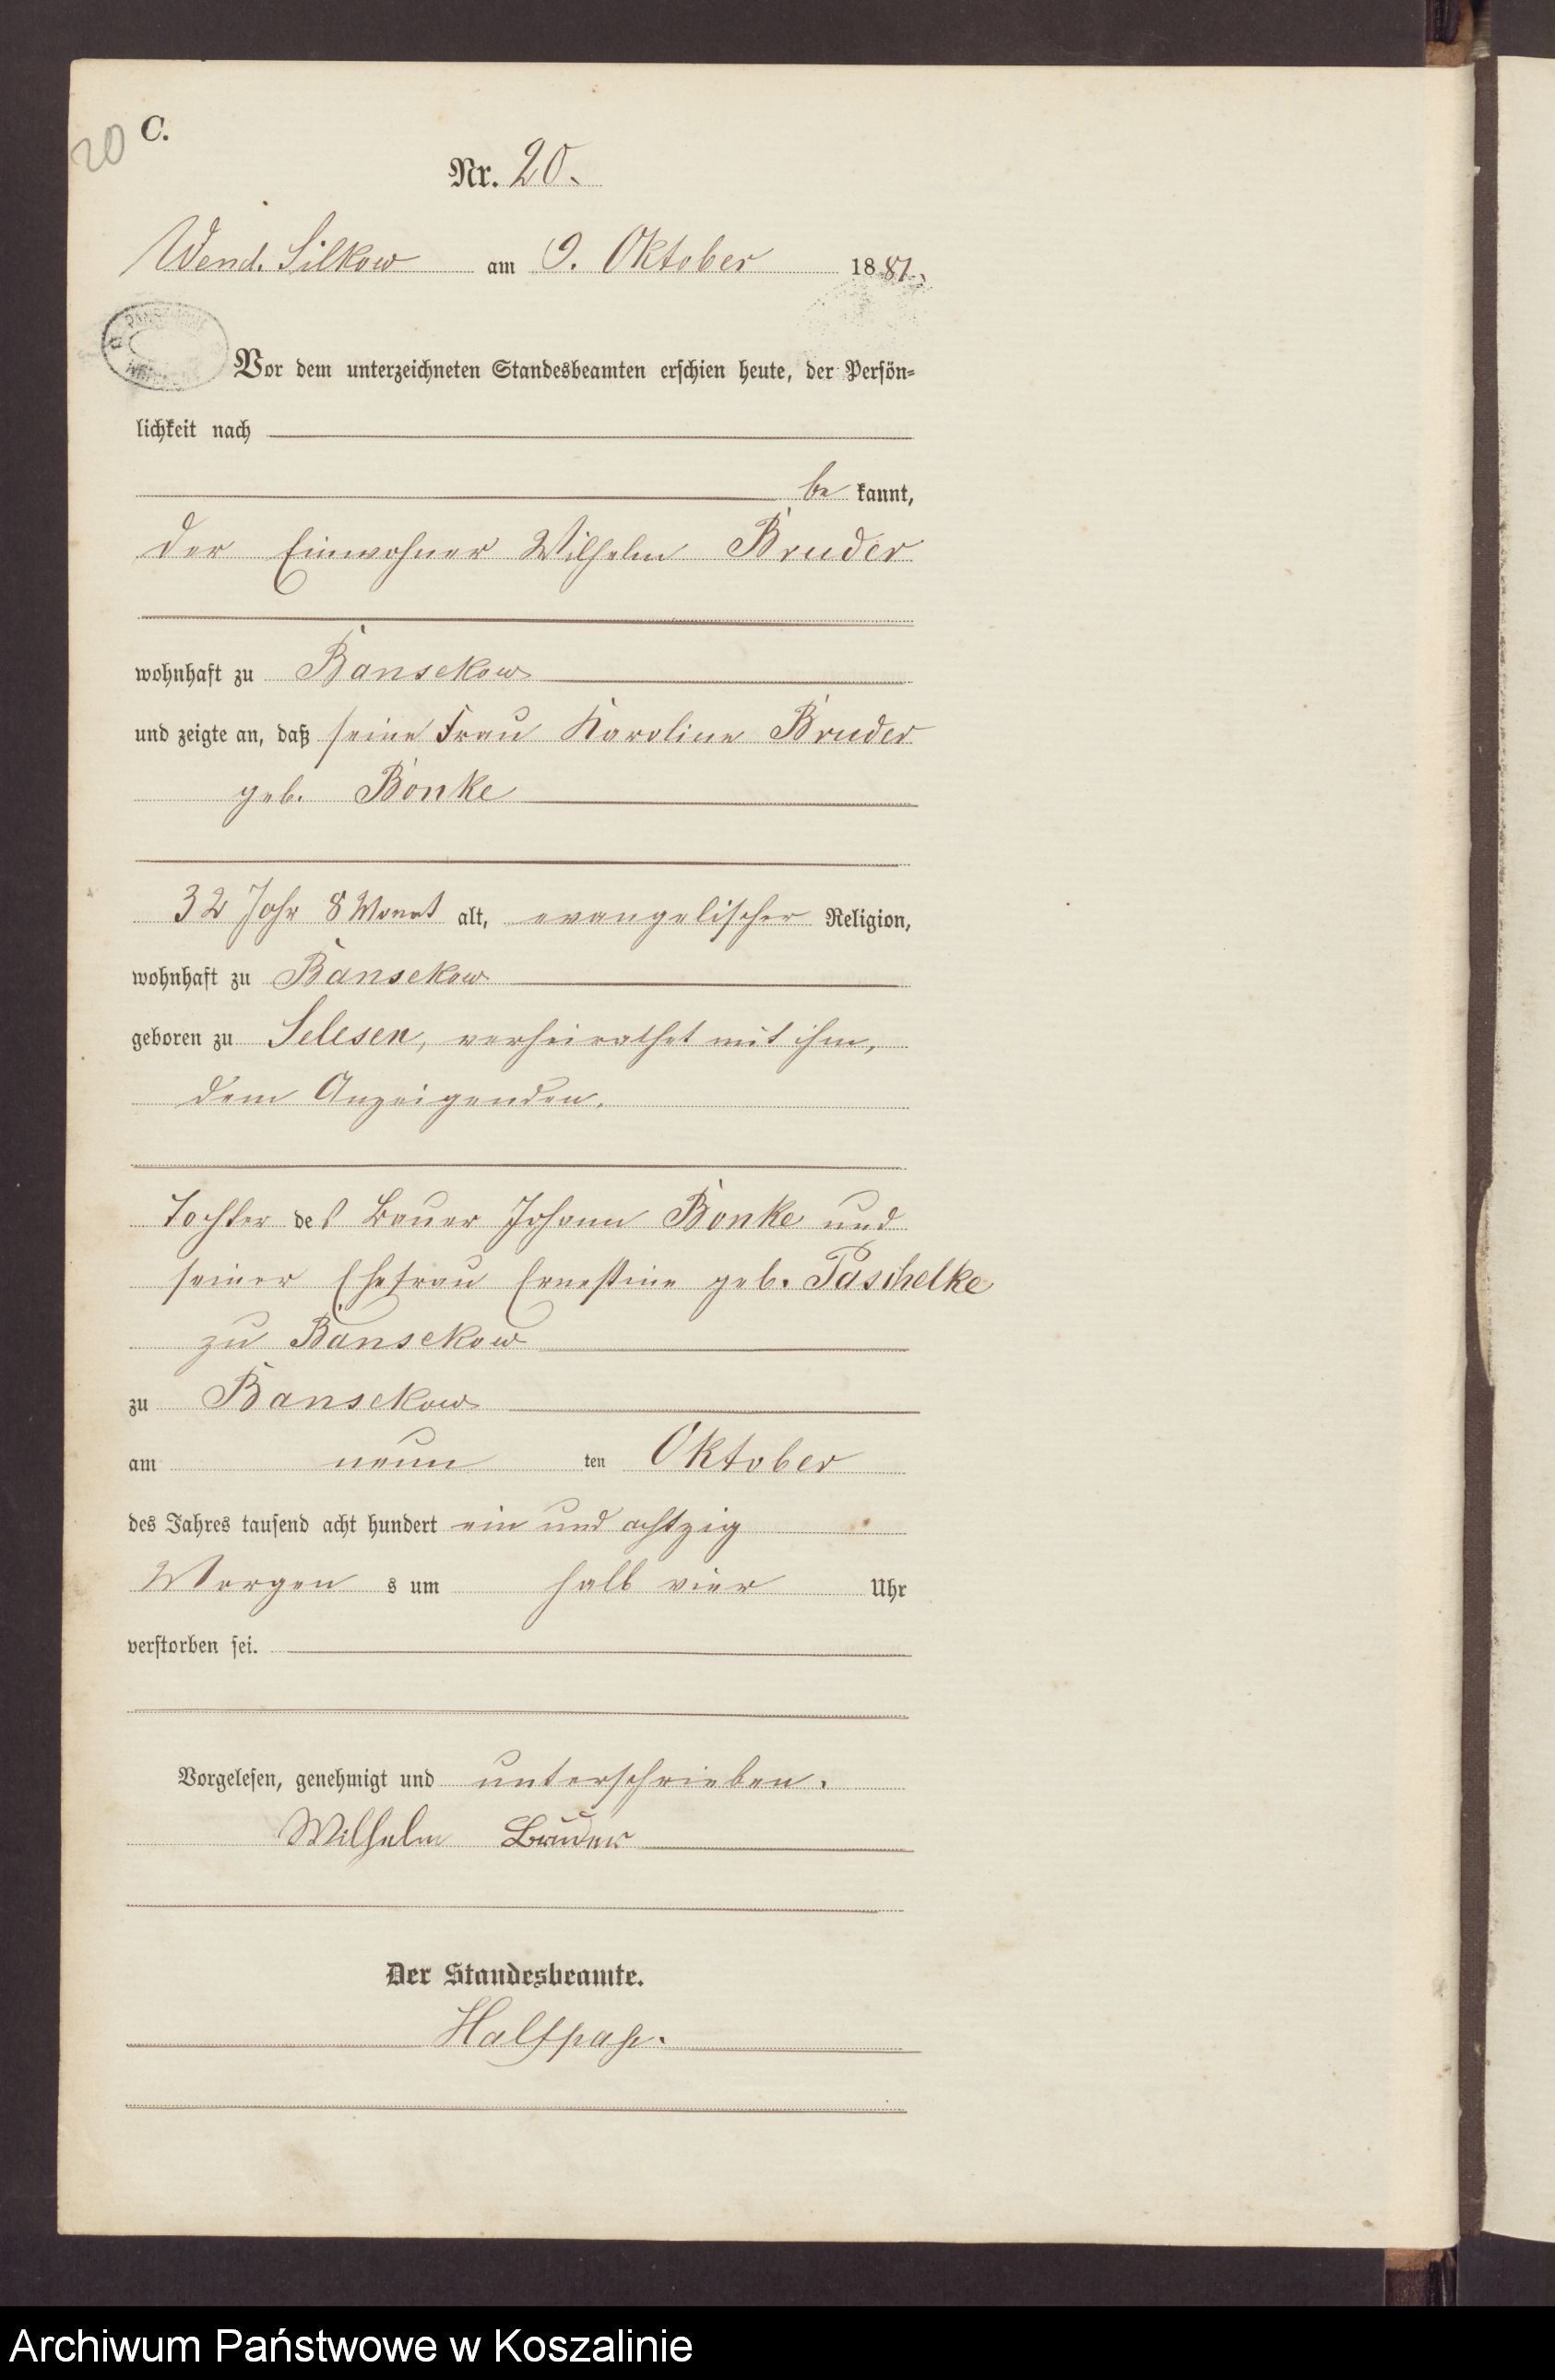 20 C.
Nr. 20.
Wend. Silkow am 9. Oktober 1881.
Vor dem unterzeichneten Standesbeamten erschien heute, der Persön-
lichkeit nach
be kannt,
der Einwohner Wilhelm Bruder
wohnhaft zu Bansekow
und zeigte an, daß seine Frau Karoline Bruder
geb. Bonke
32 Jahr 8 Monat alt, evangelischer Religion,
wohnhaft zu Bansekow
geboren zu Selesen, verheirathet mit ihm,
dem Anzeigenden.
Tochter des Bauer Johann Bonke und
seiner Ehefrau Ernestine geb. Paschelke
zu Bansekow
zu Bansekow
am neun ten Oktober
des Jahres tausend acht hundert ein und achtzig
Morgen s um halb vier Uhr
verstorben sei.
Vorgelesen, genehmigt und unterschrieben.
Wilhelm Bruder
Der Standesbeamte.
Halfpap.
Archiwum Państwowe w Koszalinie